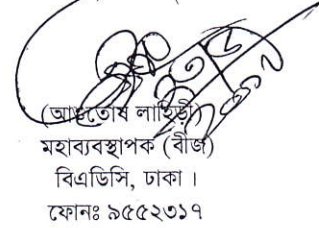 (আশুতোষ লাহিড়ী)
মহাব্যবস্থাপক (বীজ)
বিএডিসি, ঢাকা ।
ফোনঃ ৯৫৫২৩১৭